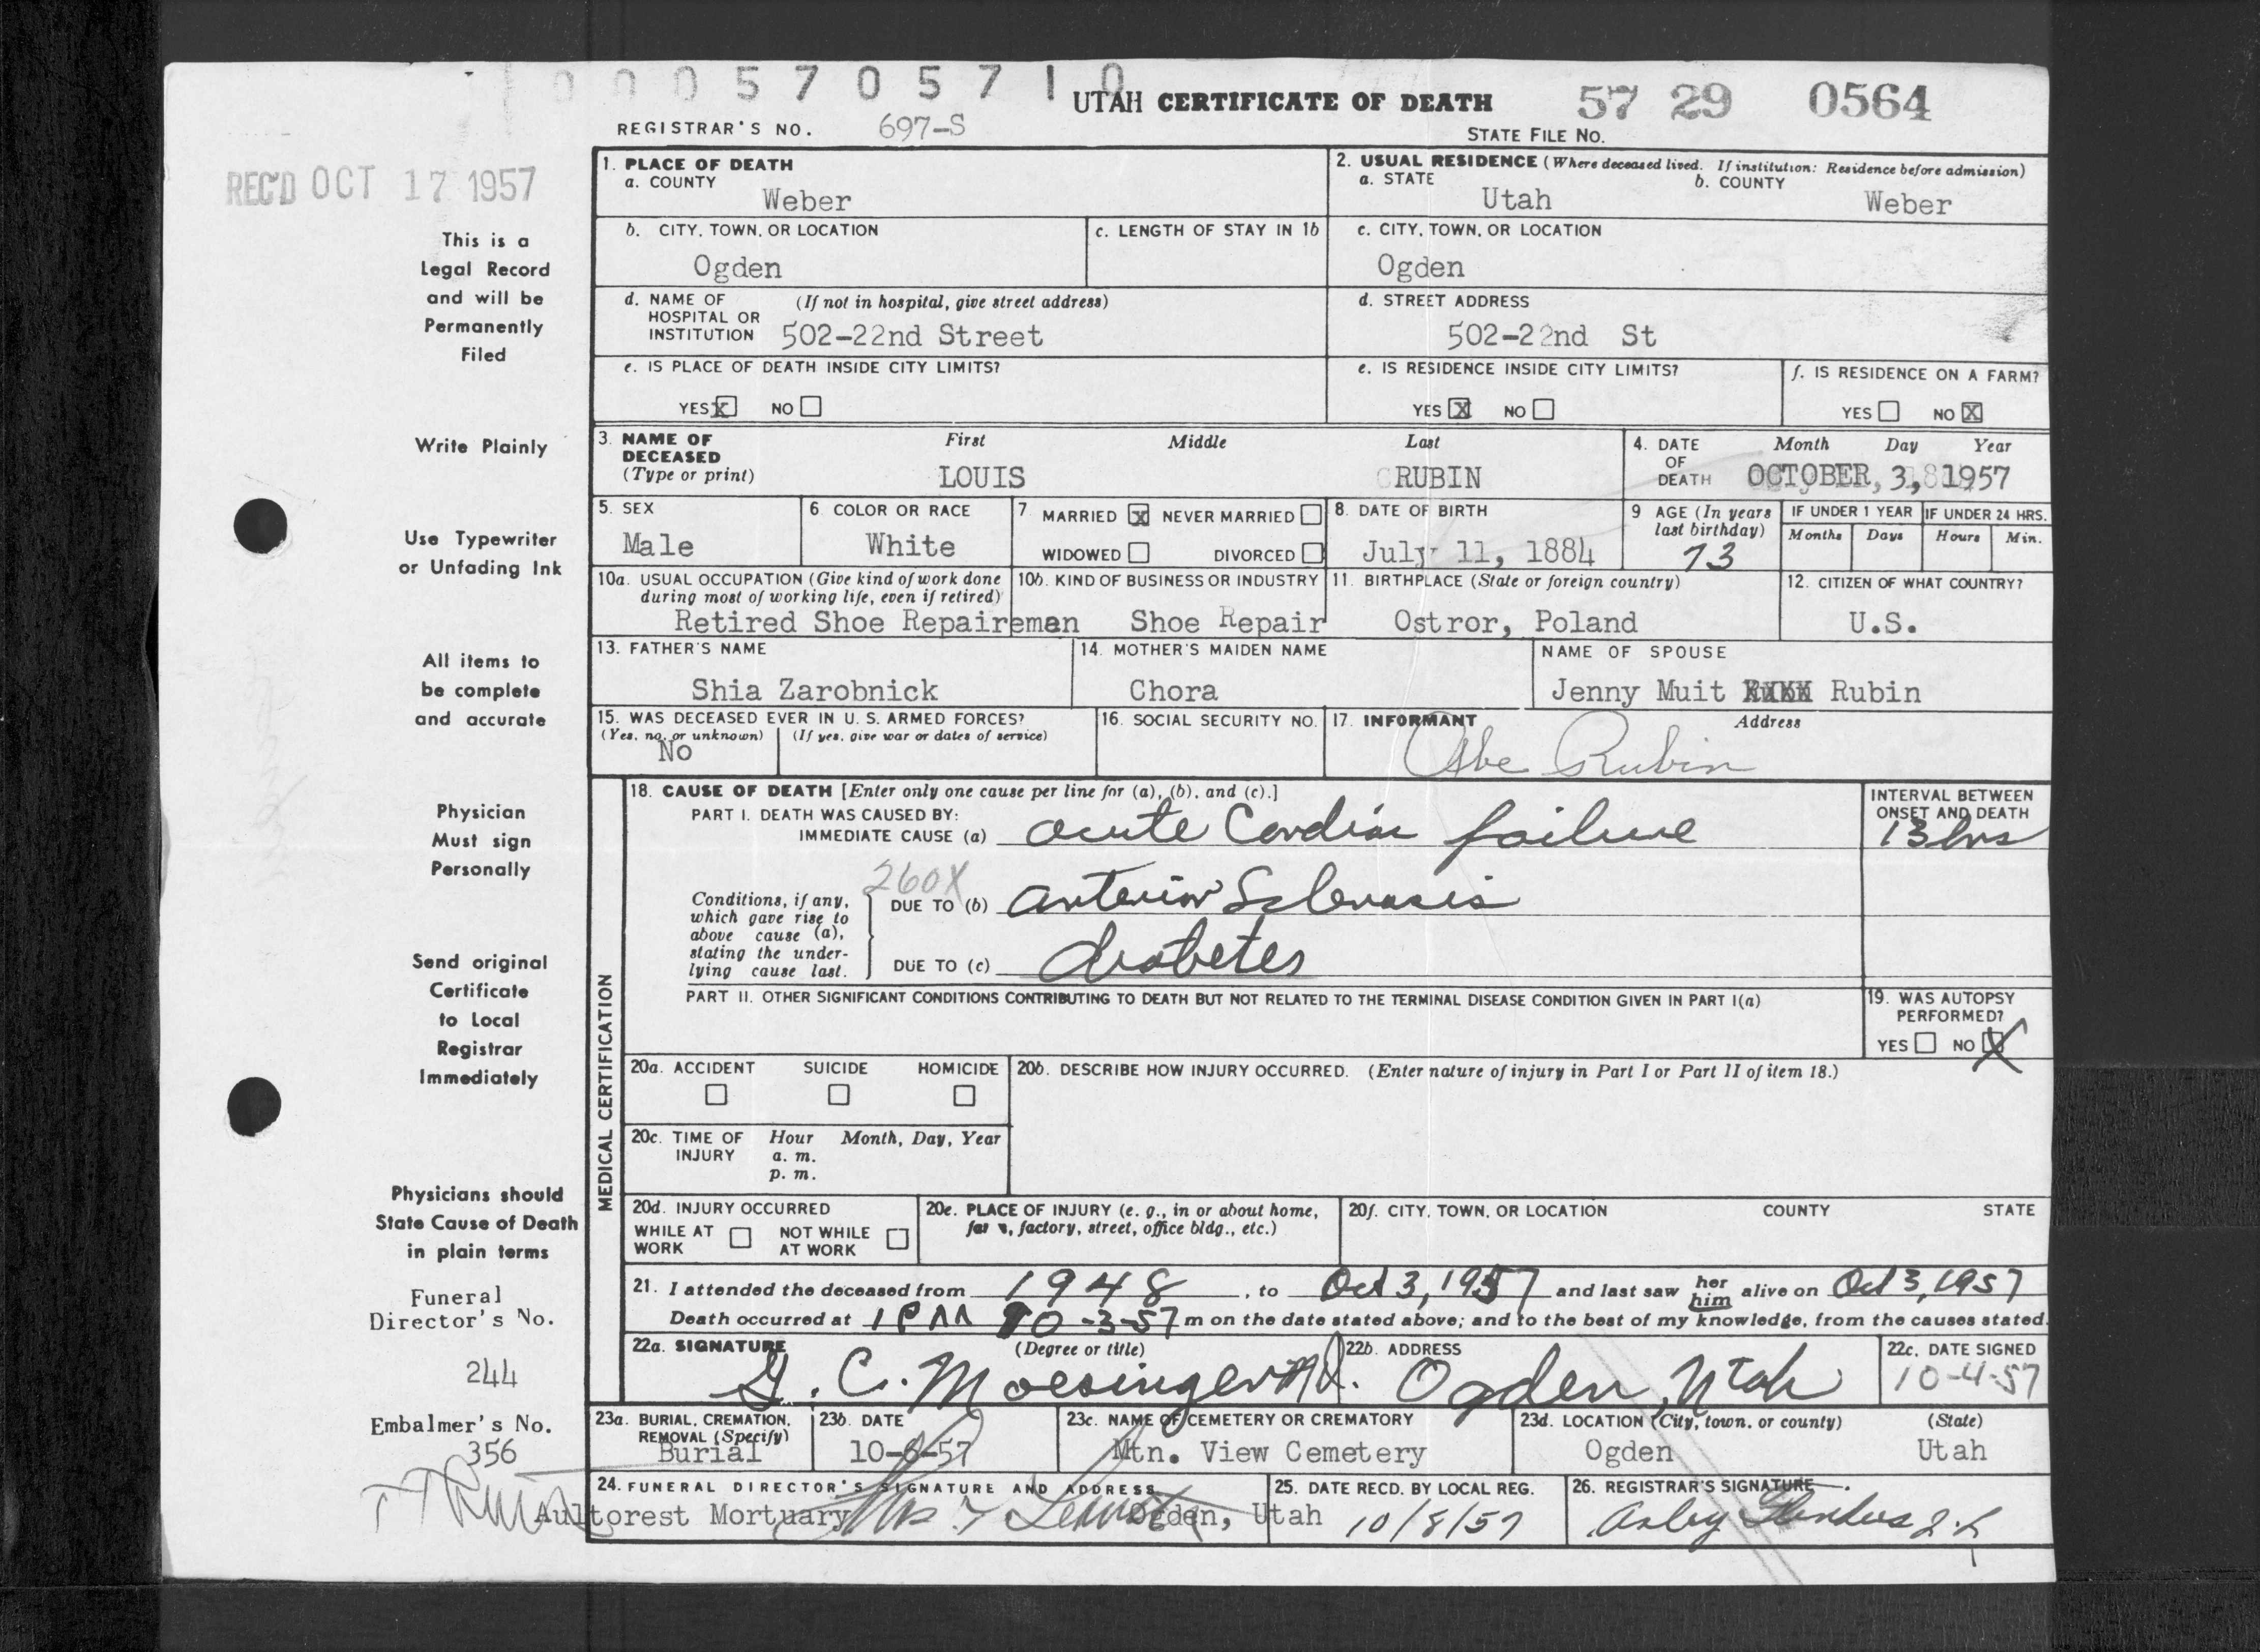 0005705710
UTAH CERTIFICATE OF DEATH
57 29 0564
REGISTRAR'S NO. 697-S
STATE FILE NO.
REC'D OCT 17 1957
This is a
Legal Record
and will be
Permanently
Filed
Write Plainly
Use Typewriter
or Unfading Ink
All items to
be complete
and accurate
Physician
Must sign
Personally
Send original
Certificate
to Local
Registrar
Immediately
Physicians should
State Cause of Death
in plain terms
Funeral
Director's No.
244
Embalmer's No.
356
1. PLACE OF DEATH
a. COUNTY
Weber
2. USUAL RESIDENCE (Where deceased lived. If institution: Residence before admission)
a. STATE
Utah
b. COUNTY
Weber
b. CITY, TOWN, OR LOCATION
Ogden
c. LENGTH OF STAY IN 1b
c. CITY, TOWN, OR LOCATION
Ogden
d. NAME OF (If not in hospital, give street address)
HOSPITAL OR
INSTITUTION 502-22nd Street
d. STREET ADDRESS
502-22nd St
e. IS PLACE OF DEATH INSIDE CITY LIMITS?
YES X NO
e. IS RESIDENCE INSIDE CITY LIMITS?
YES X NO
f. IS RESIDENCE ON A FARM?
YES NO X
3. NAME OF DECEASED
(Type or print)
First Middle Last
LOUIS RUBIN
4. DATE OF DEATH
Month Day Year
OCTOBER, 3, 1957
5. SEX
Male
6. COLOR OR RACE
White
7. MARRIED X NEVER MARRIED
WIDOWED DIVORCED
8. DATE OF BIRTH
July 11, 1884
9 AGE (In years
last birthday)
73
IF UNDER 1 YEAR
Months Days
IF UNDER 24 HRS.
Hours Min.
10a. USUAL OCCUPATION (Give kind of work done
during most of working life, even if retired)
Retired Shoe Repaireman
10b. KIND OF BUSINESS OR INDUSTRY
Shoe Repair
11. BIRTHPLACE (State or foreign country)
Ostror, Poland
12. CITIZEN OF WHAT COUNTRY?
U.S.
13. FATHER'S NAME
Shia Zarobnick
14. MOTHER'S MAIDEN NAME
Chora
NAME OF SPOUSE
Jenny Muit Rubin
15. WAS DECEASED EVER IN U. S. ARMED FORCES?
(Yes, no, or unknown) (If yes, give war or dates of service)
No
16. SOCIAL SECURITY NO.
17. INFORMANT Address
Abe Rubin
MEDICAL CERTIFICATION
18. CAUSE OF DEATH [Enter only one cause per line for (a), (b), and (c).]
PART I. DEATH WAS CAUSED BY:
IMMEDIATE CAUSE (a) acute Cardiac failure
INTERVAL BETWEEN
ONSET AND DEATH
13 hrs
260X
Conditions, if any,
which gave rise to
above cause (a),
stating the under-
lying cause last.
DUE TO (b) anterior Sclerosis
DUE TO (c) diabetes
PART II. OTHER SIGNIFICANT CONDITIONS CONTRIBUTING TO DEATH BUT NOT RELATED TO THE TERMINAL DISEASE CONDITION GIVEN IN PART I(a)
19. WAS AUTOPSY
PERFORMED?
YES NO X
20a. ACCIDENT SUICIDE HOMICIDE
20b. DESCRIBE HOW INJURY OCCURRED. (Enter nature of injury in Part I or Part II of item 18.)
20c. TIME OF INJURY
Hour Month, Day, Year
a. m.
p. m.
20d. INJURY OCCURRED
WHILE AT WORK
NOT WHILE AT WORK
20e. PLACE OF INJURY (e. g., in or about home,
farm, factory, street, office bldg., etc.)
20f. CITY, TOWN, OR LOCATION COUNTY STATE
21. I attended the deceased from 1948, to Oct 3, 1957 and last saw her him alive on Oct 3, 1957
Death occurred at 1 PM 10-3-57 m on the date stated above; and to the best of my knowledge, from the causes stated.
22a. SIGNATURE (Degree or title)
G. C. Moesinger M.D.
22b. ADDRESS
Ogden, Utah
22c. DATE SIGNED
10-4-57
23a. BURIAL, CREMATION,
REMOVAL (Specify)
Burial
23b. DATE
10-6-57
23c. NAME OF CEMETERY OR CREMATORY
Mtn. View Cemetery
23d. LOCATION (City, town, or county) (State)
Ogden Utah
24. FUNERAL DIRECTOR'S SIGNATURE AND ADDRESS
Aultorest Mortuary Ogden, Utah
25. DATE RECD. BY LOCAL REG.
10/8/57
26. REGISTRAR'S SIGNATURE